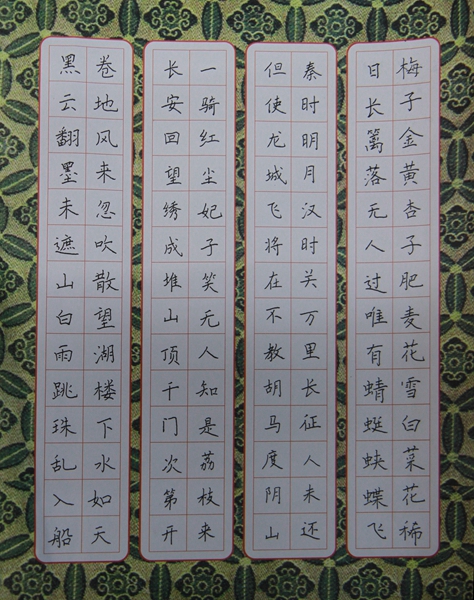 梅子金黄杏子肥麦花雪白菜花稀
日长篱落无人过唯有蜻蜓蛱蝶飞
秦时明月汉时关万里长征人未还
但使龙城飞将在不教胡马度阴山
长安回望绣成堆山顶千门次第开
一骑红尘妃子笑无人知是荔枝来
黑云翻墨未遮山白雨跳珠乱入船
卷地风来忽吹散望湖楼下水如天